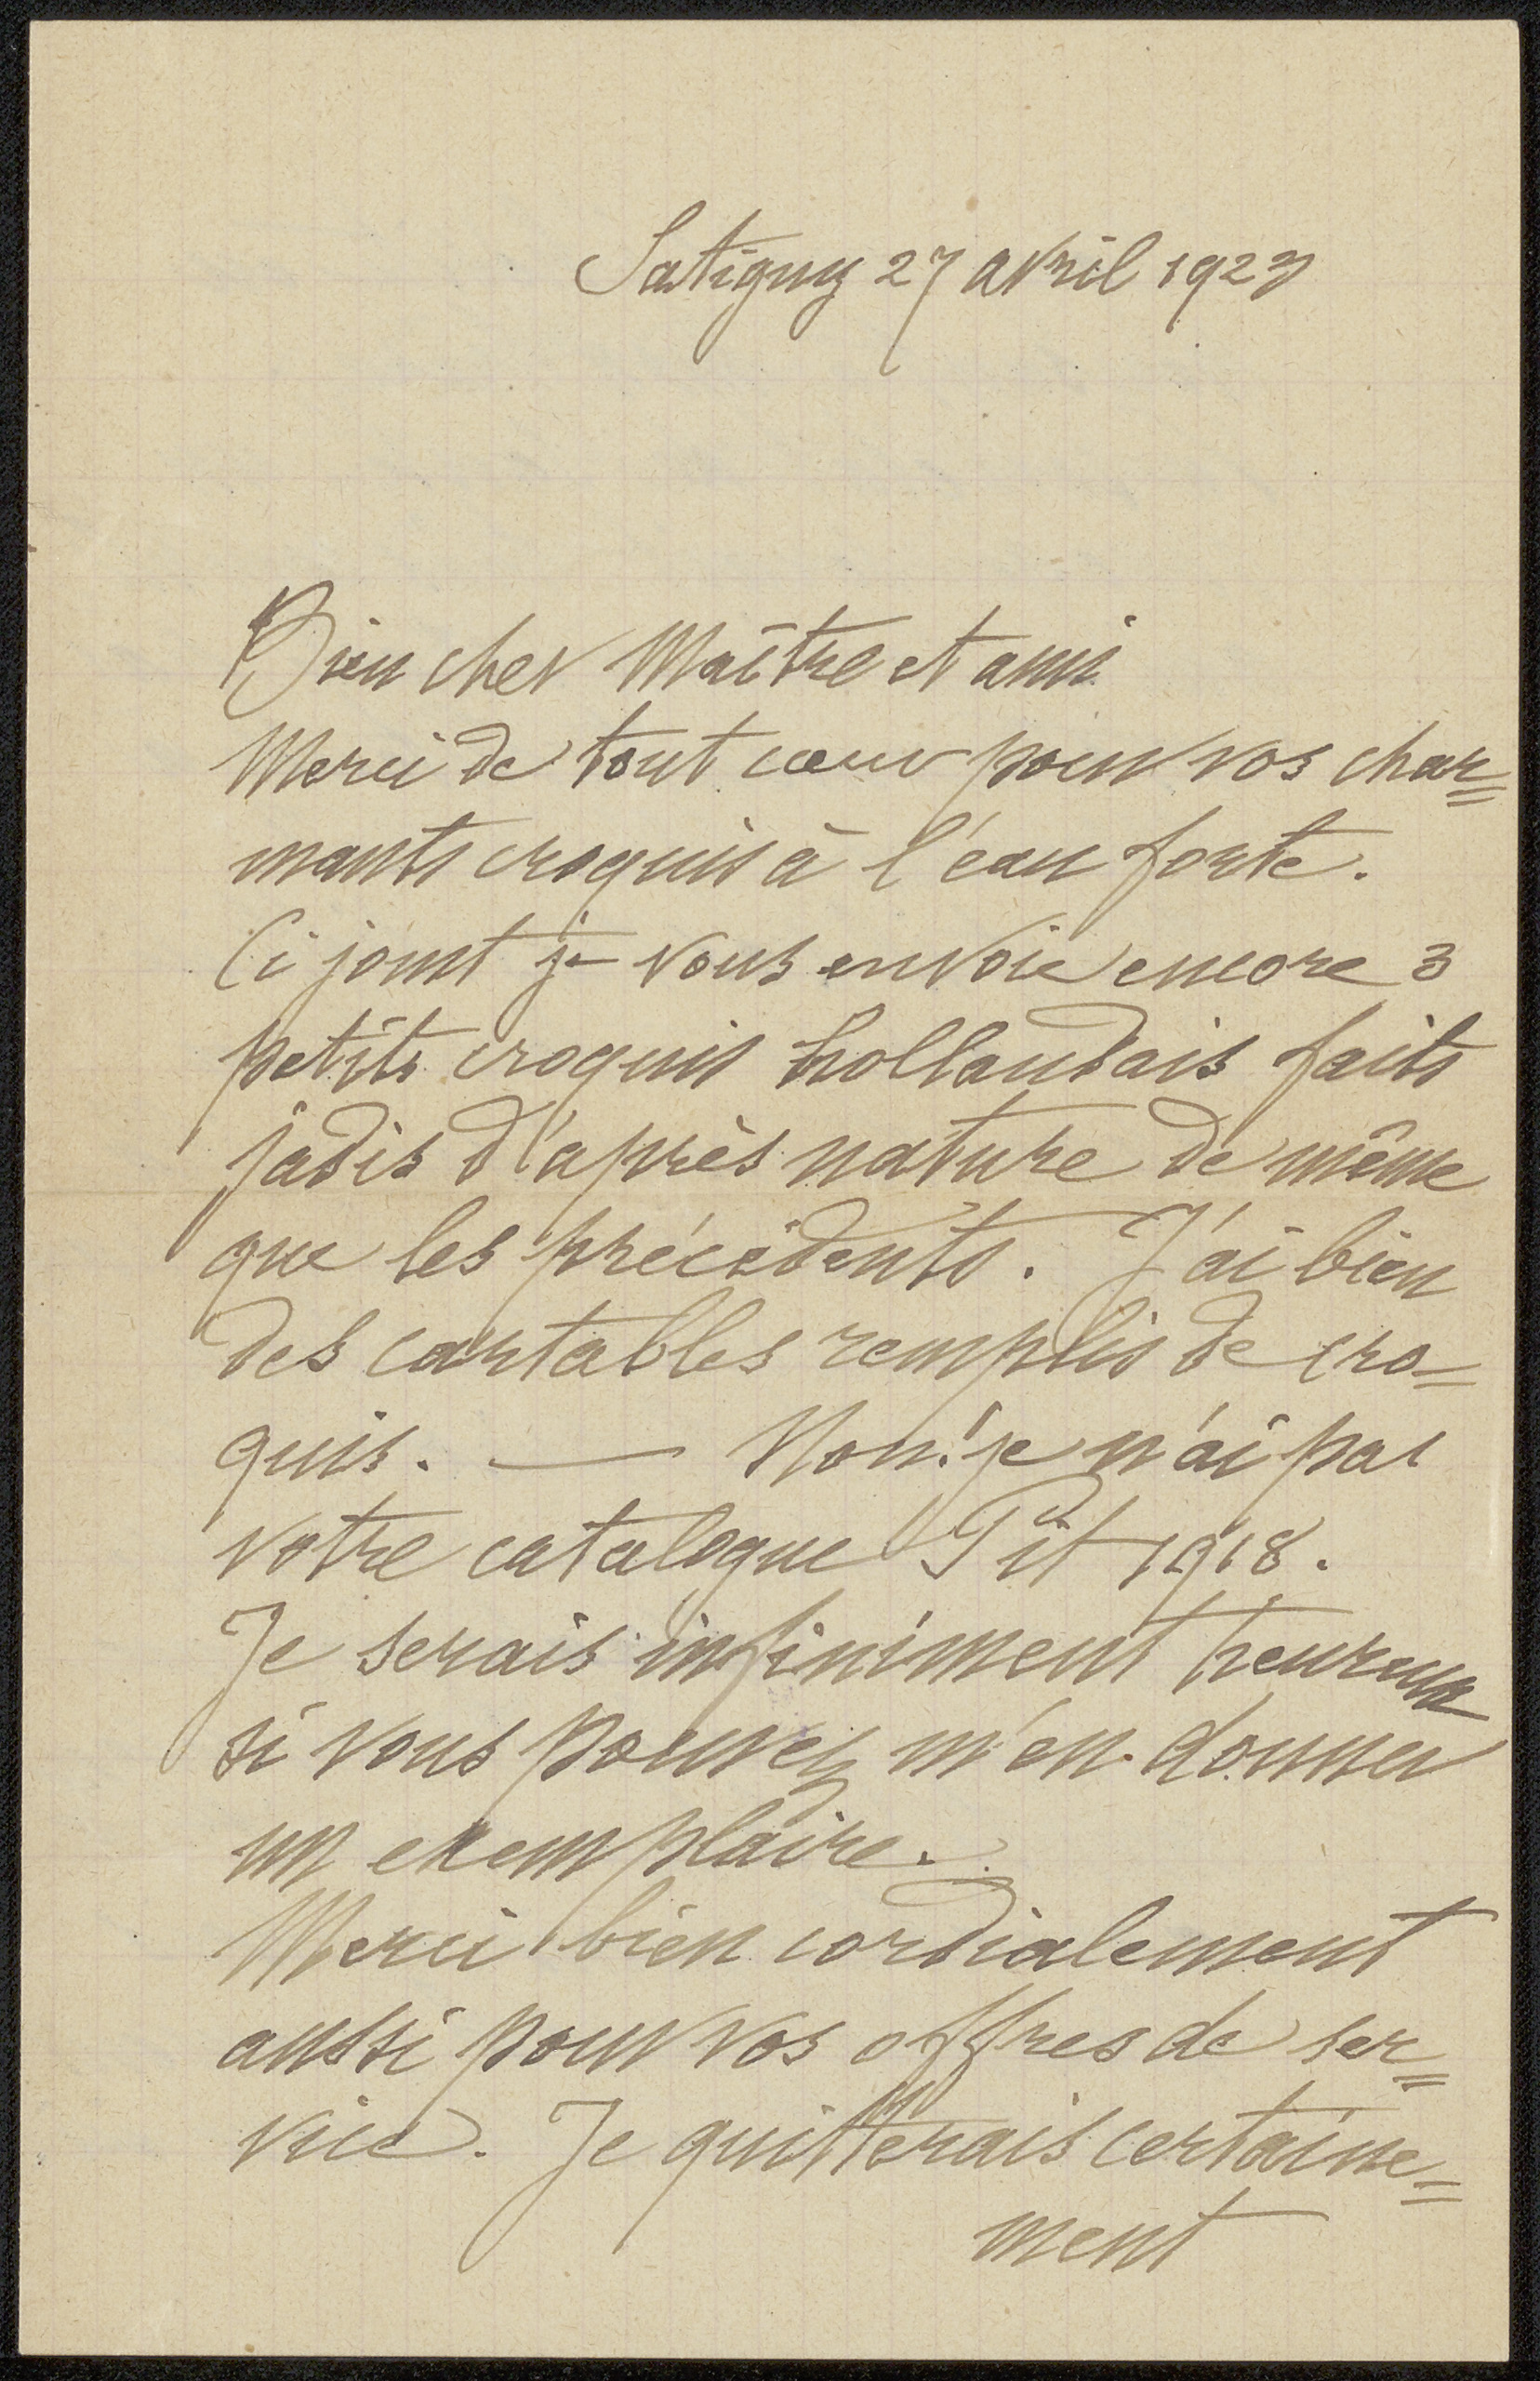 Satigny 27 avril 1923
Bien cher Maître et ami
Merci de tout cœur pour vos char=
mants croquis à l'éau forte.
Ci joint je vous envoie encore 3
petits croquis hollandais faits
jadis d'après nature de même
que les précédents. J'ai bien
des cartables remplis de cro=
quis. — Non! je n'ai pas
votre catalogue Pit 1918.
Je serais infiniment heureux
si vous pouvez m'en donner
un exemplaire.
Merci bien cordialement
aussi pour vos offres de ser=
vice. Je quitterais certaine=
ment